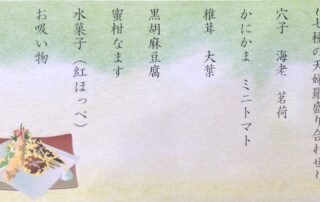 七種の天婦羅盛り合わせ
穴子 海老 茗荷
かにかま ミニトマト
椎茸 大葉
黒胡麻豆腐
蜜柑なます
水菓子（紅ほっぺ）
お吸い物